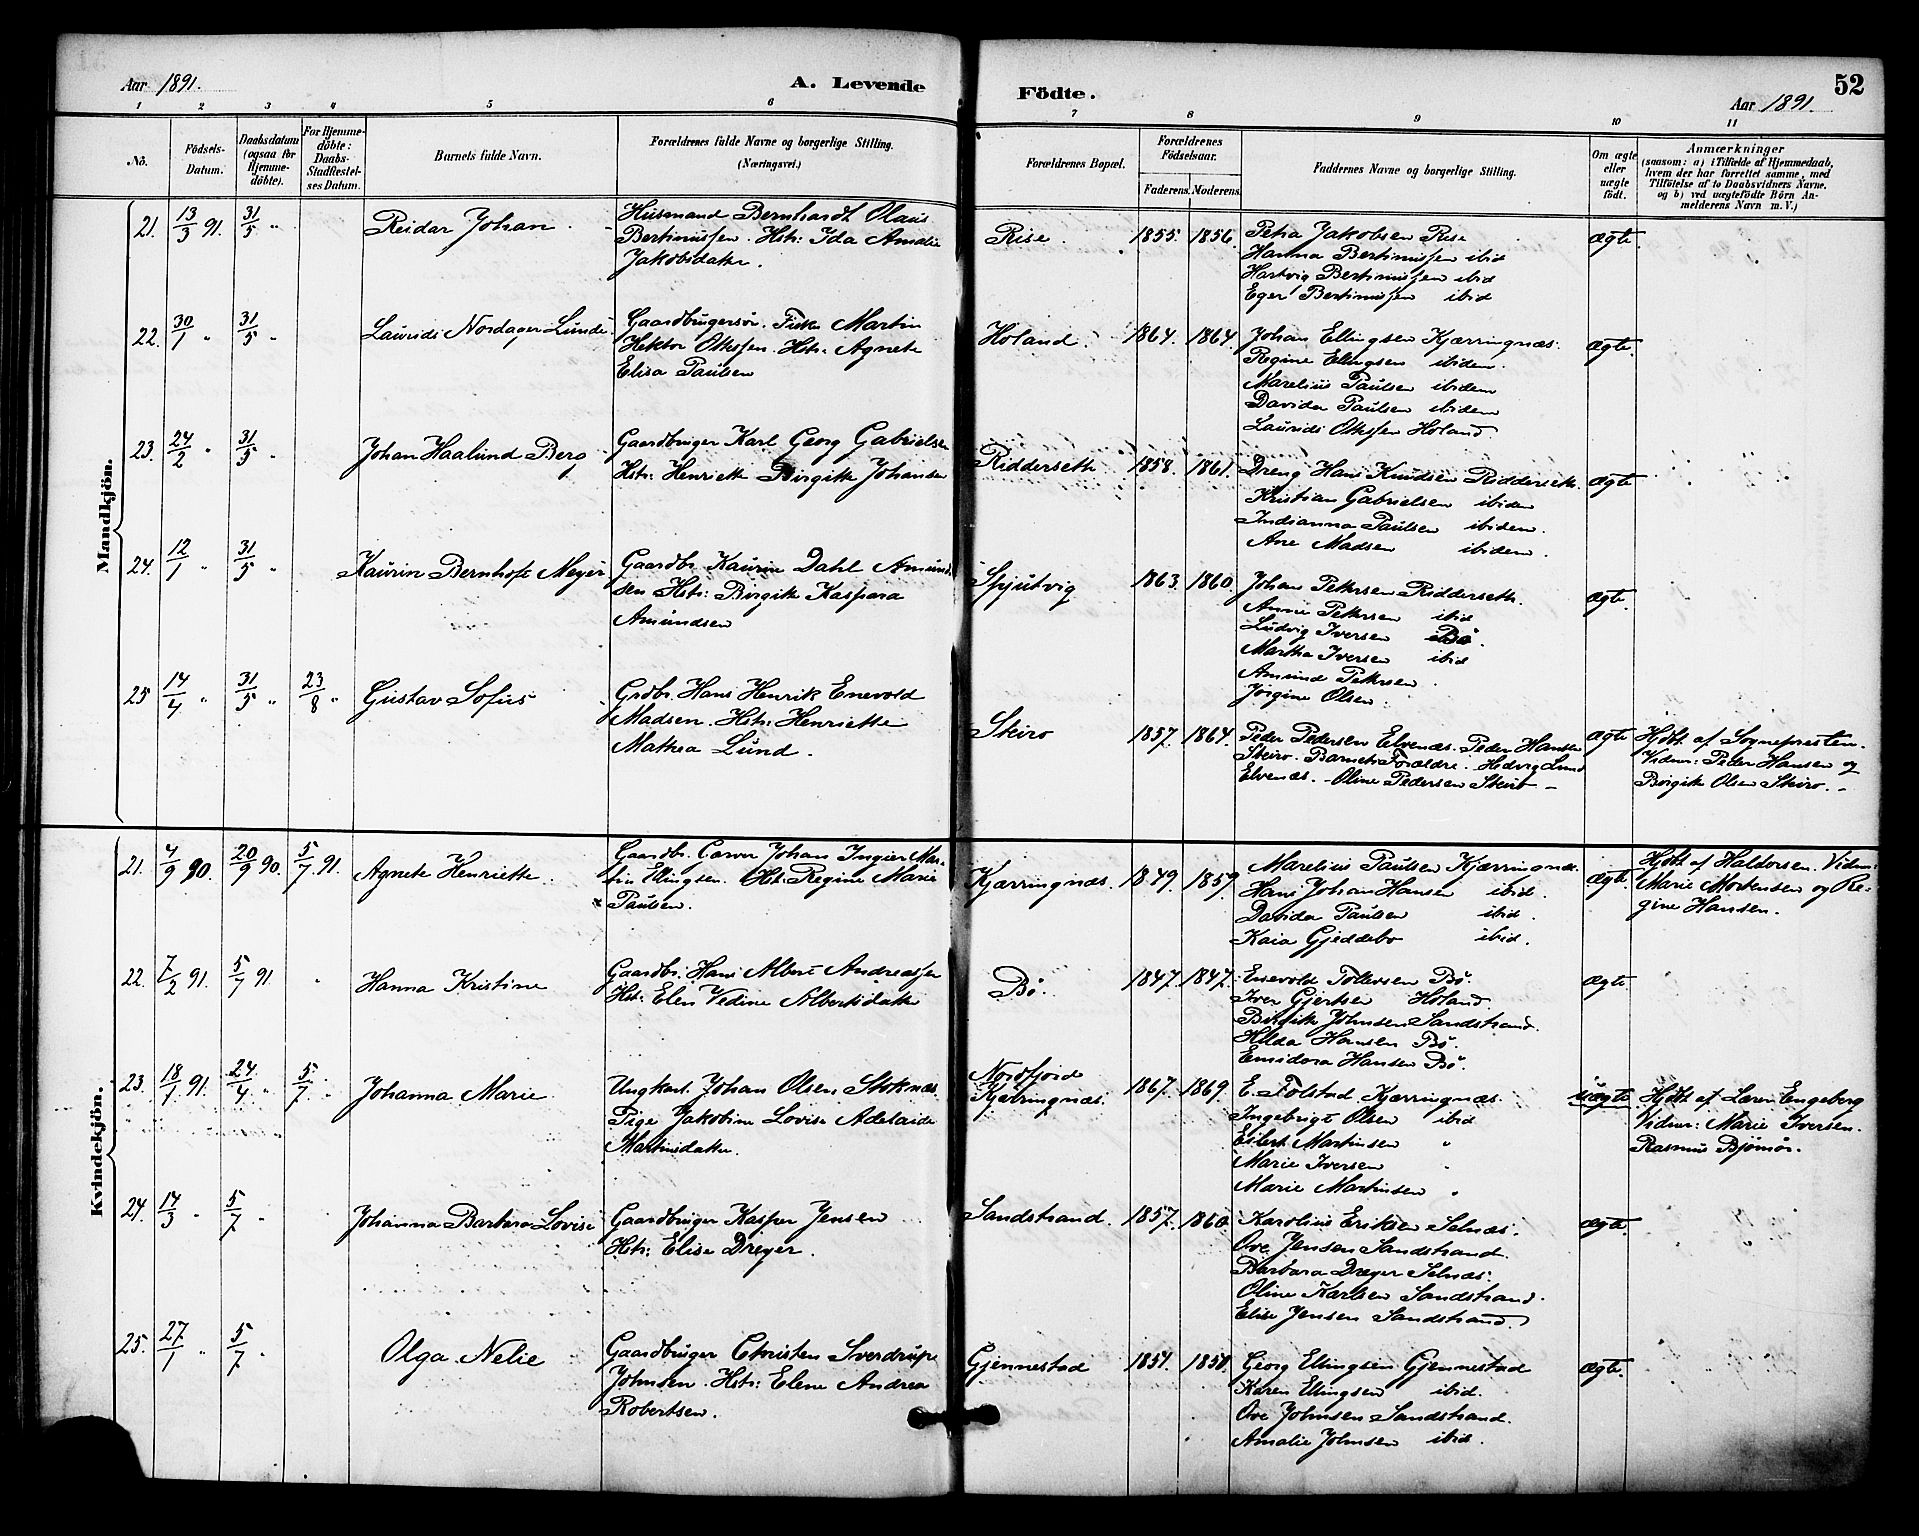 Aar 1891.
A. Levende
Födte.
52
Aar 1891.
1 2 3 4 5 6 7 8 9 10 11
Nō.
Födsels-
Datum.
Daabsdatum
(ogsaa for
Hjemme-
döbte).
For Hjemme-
döbte:
Daabs-
Stadfestel-
ses Datum.
Barnets fulde Navn.
Forældrenes fulde Navne og borgerlige Stilling.
(Næringsvei.)
Forældrenes Bopæl.
Forældrenes
Födselsaar.
Faderens. Moderens.
Faddernes Navne og borgerlige Stilling.
Om ægte
eller
uægte
födt.
Anmærkninger
(saasom: a) i Tilfælde af Hjemmedaab,
hvem der har forrettet samme, med
Tilföielse af to Daabsvidners Navne,
og b) ved uægtefödte Börn An-
melderens Navn m. V.)
Mandkjön.
21. 13/3 91. 31/5 „ Reidar Johan
Husmand Bernhardt Olaus
Bertinussen. Hstr: Ida Amalie
Jakobsdatter.
Rise. 1855. 1856.
Petra Jakobsen Rise
Hanna Bertinussen ibid
Hartvig Bertinussen ibid
Eger Bertinussen ibid
ægte.
22. 30/1 „ 31/5 „ Laurids Nordager Lunde
Gaardbrugersön. Fisker Martin
Hektor Ottessen. Hstr: Agnete
Elisa Paulsen
Holand. 1864. 1864.
Johan Ellingsen Kjærringnæs.
Regine Ellingsen ibidem.
Marelius Paulsen ibidem
Davida Paulsen ibidem
Laurids Ottessen Holand.
ægte.
23. 24/2 „ 31/5 „ Johan Haalund Berg
Gaardbruger Karl Georg Gabrielsen
Hstr: Henriette Birgitte Johansen
Ridderseth 1858. 1861.
Dreng Hans Knudsen Ridderseth.
Kristian Gabrielsen ibidem
Indianna Paulsen ibidem.
Ane Madsen ibidem.
ægte
24. 12/1 „ 31/5 „ Kaurin Bernhoft Meyer
Gaardbr. Kaurin Dahl Amund-
sen Hstr: Birgitte Kaspara
Amundsen
Spjutvig 1863. 1860.
Johan Pettersen Ridderseth.
Anne Pettersen ibid
Ludvig Iversen Bö.
Martha Iversen ibid
Amund Pettersen.
Jörgine Olsen.
ægte.
25 14/4 „ 31/5 „ 23/8 „ Gustav Sofus
Grdbr. Hans Henrik Enevold
Madsen. Hstr: Henriette
Mathea Lund.
Skiro 1857. 1864.
Peder Pedersen Elvenæs. Peder Hansen
Skiro. Barnets Forældre. Hedvig Lund
Elvenæs. - Oline Pedersen Skiro -
ægte
Hjdbt. af Sognepresten.
Vidner: Peder Hansen og
Birgitte Olsen Skiro. -
Kvindekjön.
21. 4/9 90. 20/9 90. 5/7 91. Agnete Henriette
Gaardbr. Johan Ingier Mar-
tin Ellingsen. Hst: Regine Marie
Paulsen.
Kjærringnæs. 1849. 1859.
Marelius Paulsen Kjærringnæs.
Hans Johan Hansen ibid.
Davida Paulsen ibid.
Kaia Gjeddebo ibid.
ægte.
Hjdbt. af Haldorsen. Vidner:
Marie Mortensen og Re-
gine Hansen.
22. 7/2 91. 5/7 91 „ Hanna Kristine
Gaardbr. Hans Albert Andreassen
Hst: Elen Vedine Albertsdatter
Bö. 1847. 1847.
Enevold Tollevsen Bö.
Iver Gjertsen Holand.
Birgitte Johnsen Sandstrand.
Hilda Hansen Bö.
Emidora Hansen Bö.
ægte.
23. 18/1 91. 24/4 „ 5/7 „ Johanna Marie
Ungkarl Johan Olsen Stoknæs
Pige Jakobine Lovise Adelaide
Martinsdatter.
Nordfjord
Kjærringnæs. 1867. 1869.
E. Folstad Kjærringnæs.
Ingebrigt Olsen ibid
Eilert Martinsen „
Marie Iversen „
Marie Martinsen „
uægte
Hjdbt. af Lærer Engeberg
Vidner: Marie Iversen.
Rasmus Bjömör.
24. 14/3 „ 5/7 „ Johanna Barbara Lovise
Gaardbruger Kasper Jensen
Hstr: Elise Dreyer.
Sandstrand. 1857. 1860.
Karolius Eriksen Selnæs.
Ove Jensen Sandstrand.
Barbara Dreyer Selnæs.
Oline Karlsen Sandstrand.
Elise Jensen Sandstrand.
ægte.
25. 27/1 „ 5/7 „ Olga Nelie
Gaardbruger Christen Sverdrup
Johnsen. Hstr: Elene Andrea
Robertsen.
Gjennestad 1851. 1851.
Georg Ellingsen Gjennestad
Karen Ellingsen ibid.
Ove Johnsen Sandstrand.
Amalie Johnsen ibid.
ægte.